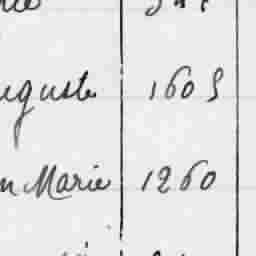 uguste 1605
n Marie 1260